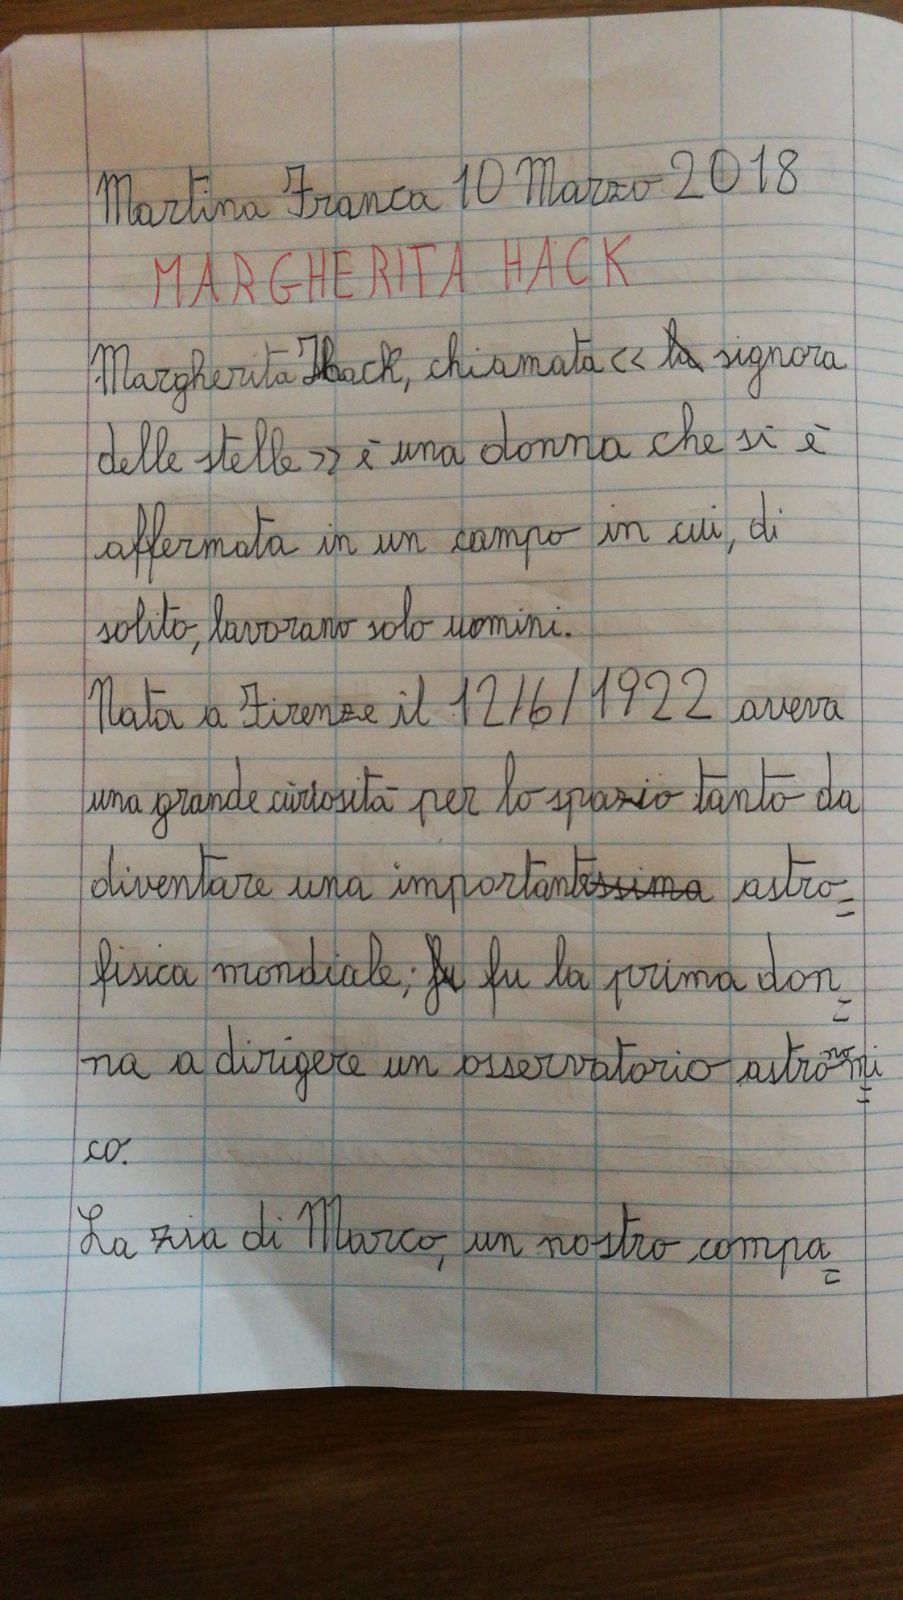 Martina Franca 10 Marzo 2018
MARGHERITA HACK
Margherita Hack, chiamata << la signora
delle stelle >> è una donna che si è
affermata in un campo in cui, di
solito, lavorano solo uomini.
Nata a Firenze il 12/6/1922 aveva
una grande curiosità per lo spazio tanto da
diventare una importantissima astro=
fisica mondiale; fu fu la prima don=
na a dirigere un osservatorio astronomi=
co.
La zia di Marco, un nostro compa=